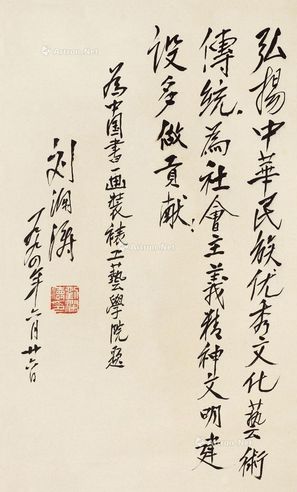 弘揚中華民族优秀文化藝術
傳統，為社會主義精神文明建
設多做貢献！
為中国書画裝裱工藝學院題
刘瀾濤
一九九四年六月廿六日